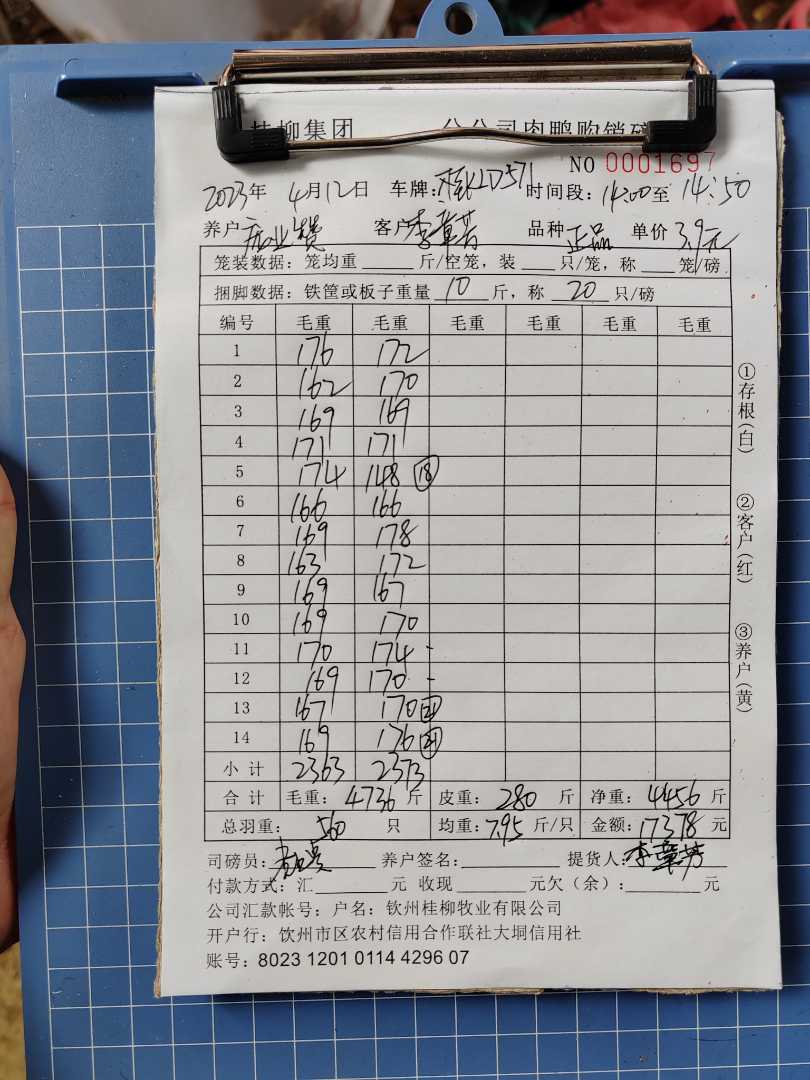 桂柳集团 分公司肉鸭购销磅
NO 0001697
2023年 4月12日 车牌: D571 时间段: 14:00至 14:50
养户 业 客户 李章芳 品种 正品 单价 3.9元
笼装数据: 笼均重 斤/空笼, 装 只/笼, 称 笼/磅
捆脚数据: 铁筐或板子重量 10 斤, 称 20 只/磅
编号 毛重 毛重 毛重 毛重 毛重 毛重
1 176 172
2 162 170
3 169 169
4 171 171
5 174 148 18
6 166 166
7 169 178
8 163 172
9 169 167
10 169 170
11 170 174 -
12 169 170 -
13 167 170 21
14 169 176 21
小计 2363 2373
合计 毛重: 4736 斤 皮重: 280 斤 净重: 4456 斤
总羽重: 560 只 均重: 7.95 斤/只 金额: 17378 元
司磅员: 养户签名: 提货人: 李章芳
付款方式: 汇 元 收现 元欠(余): 元
公司汇款帐号: 户名: 钦州桂柳牧业有限公司
开户行: 饮州市区农村信用合作联社大垌信用社
账号: 8023 1201 0114 4296 07
①存根(白)
②客户(红)
③养户(黄)